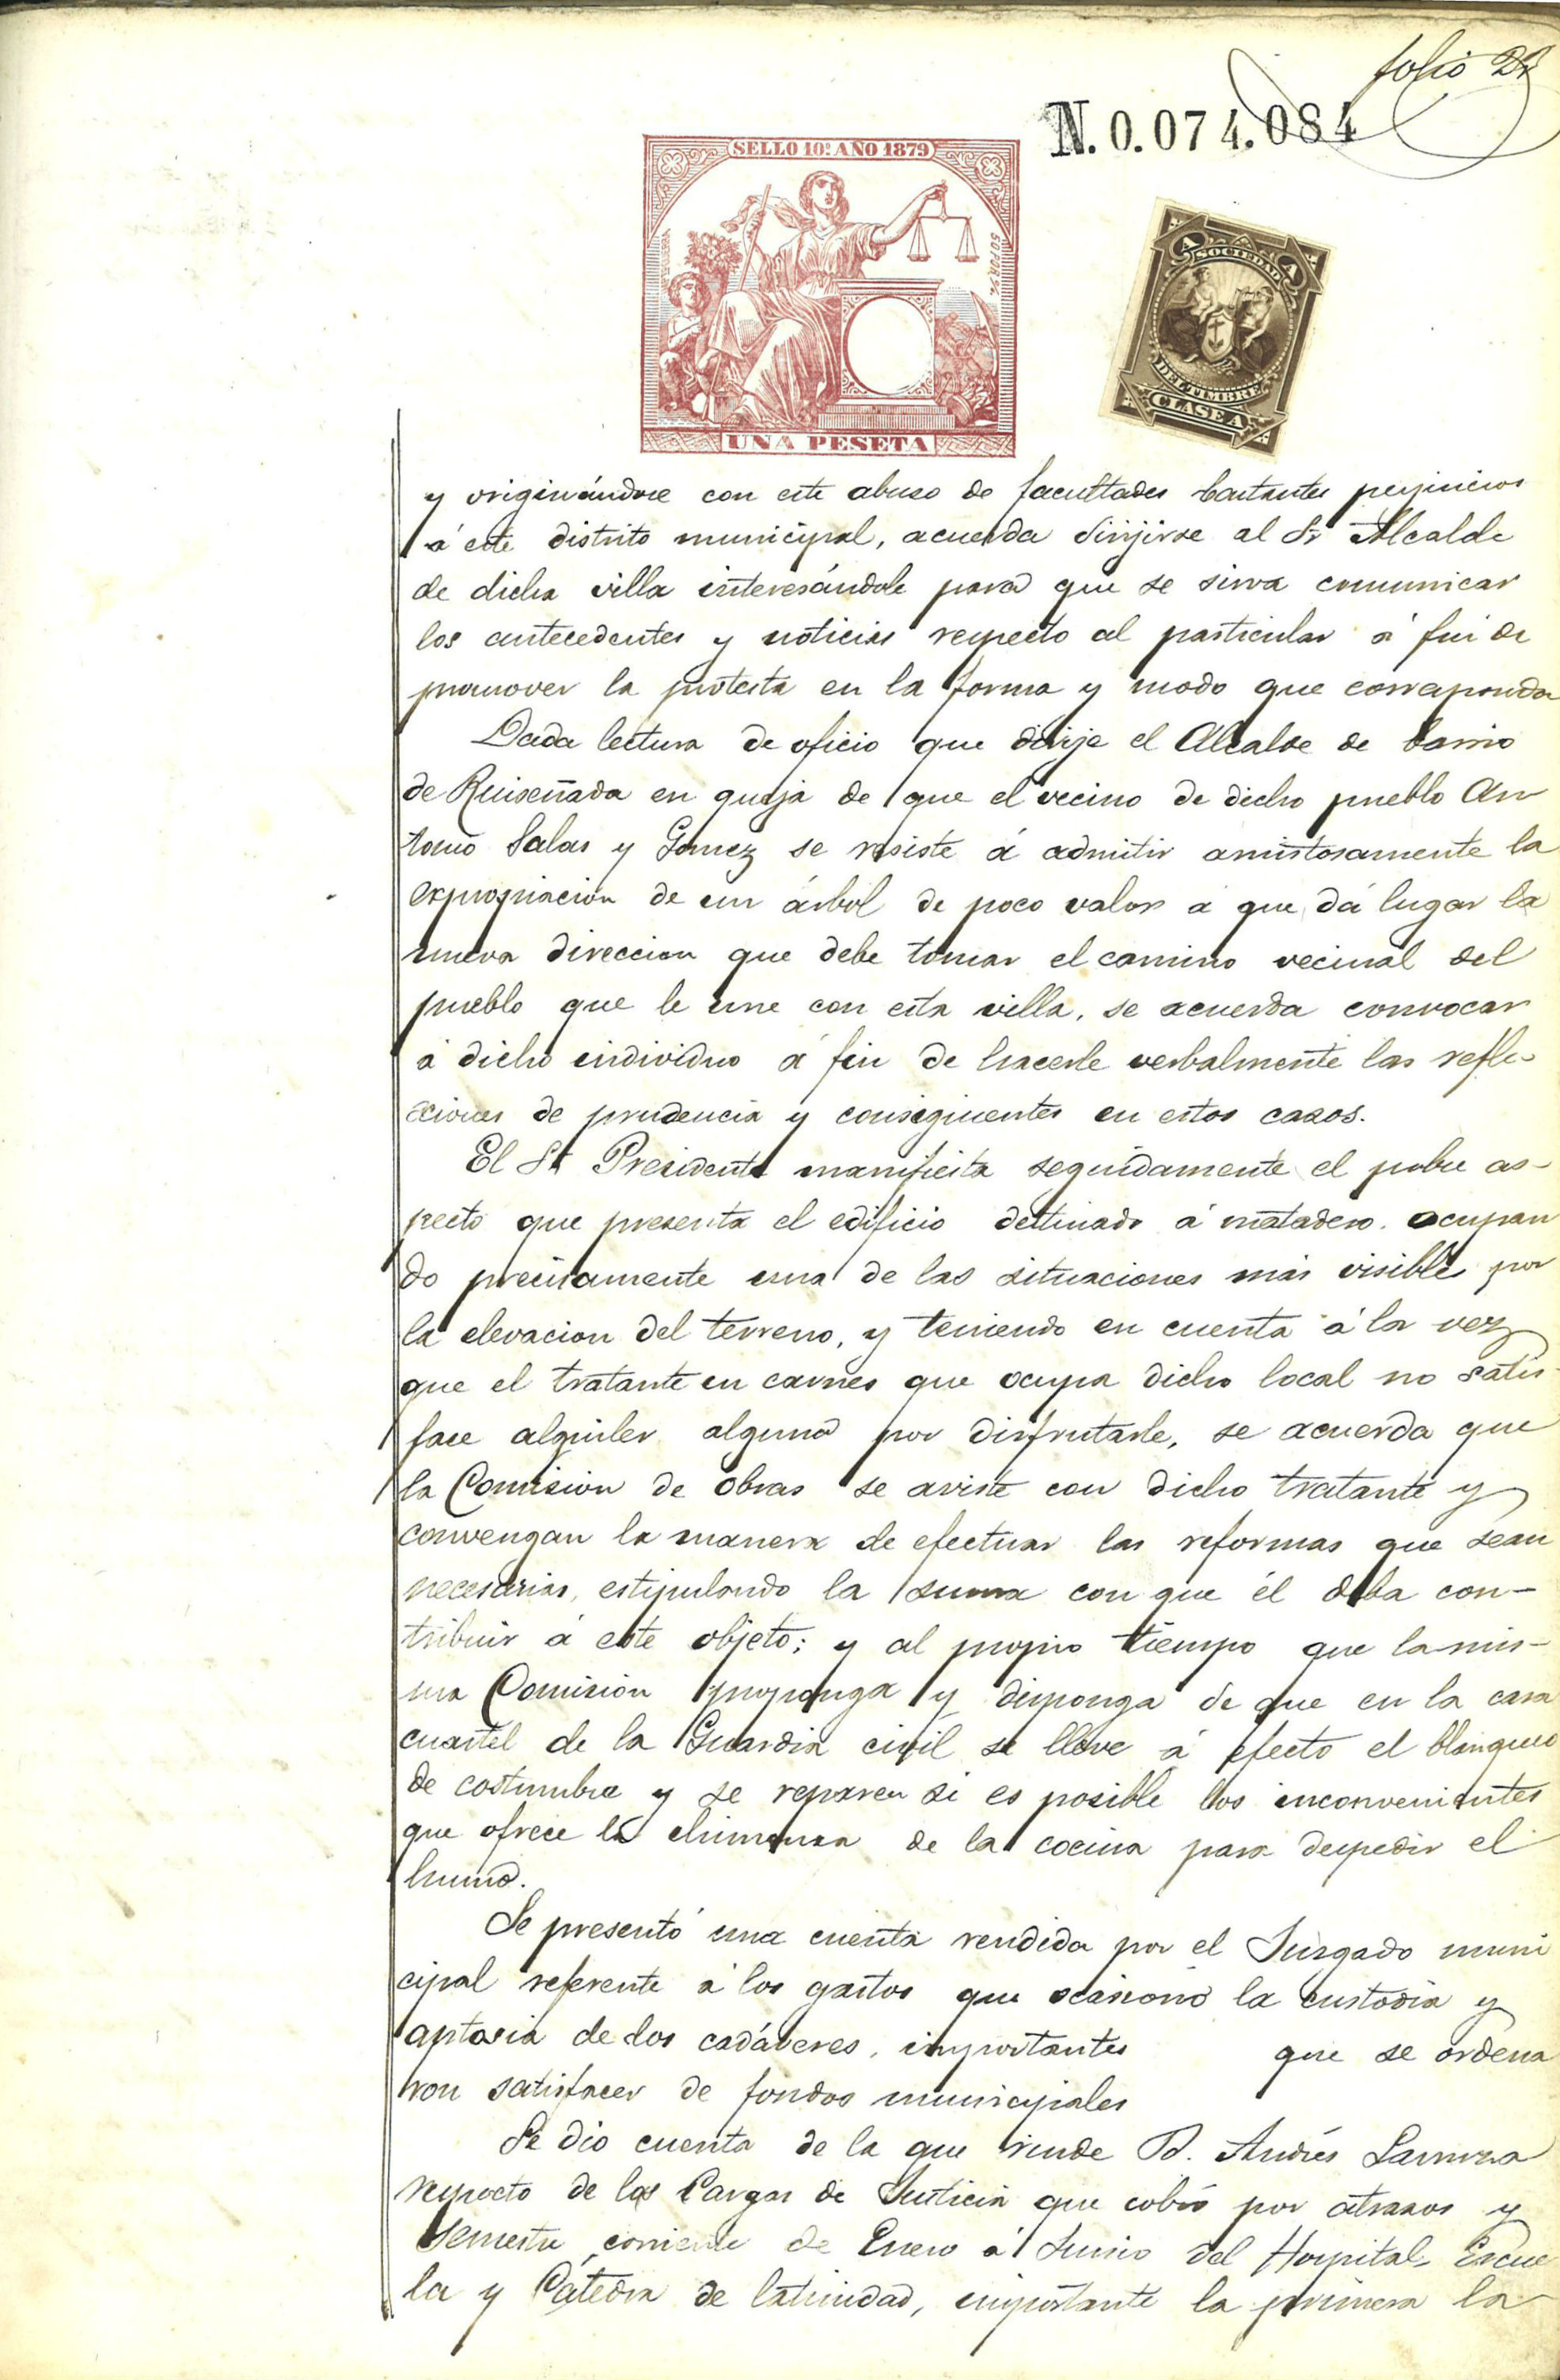 folio 22
N.0.074.084
SELLO 10º AÑO 1879
UNA PESETA
A SOCIEDAD A
DEL TIMBRE
CLASE A
y originándose con este abuso de facultades bastantes perjuicios
á este distrito municipal, acuerda dirijirse al Sr Alcalde
de dicha villa interesándole para que se sirva comunicar
los antecedentes y noticias respecto al particular á fin de
promover la protesta en la forma y modo que corresponda
Dada lectura de oficio que dirije el Alcalde de barrio
de Ruiseñada en queja de que el vecino de dicho pueblo An
tonio Salas y Gomez se resiste á admitir amistosamente la
expropiacion de un árbol de poco valor á que dá lugar la
nueva direccion que debe tomar el camino vecinal del
pueblo que le une con esta villa, se acuerda convocar
á dicho individuo á fin de hacerle verbalmente las refle-
xiones de prudencia y consiguientes en estos casos.
El Sr Presidente manifiesta seguidamente el pobre as-
pecto que presenta el edificio destinado á matadero, ocupan
do precisamente una de las situaciones más visibles por
la elevacion del terreno, y teniendo en cuenta á la vez
que el tratante en carnes que ocupa dicho local no satis-
face alquiler alguno por disfrutarle, se acuerda que
la Comision de obras se aviste con dicho tratante y
convengan la manera de efectuar las reformas que sean
necesarias, estipulando la suma con que él deba con-
tribuir á este objeto; y al propio tiempo que la mis-
ma Comision proponga y disponga de que en la casa
cuartel de la Guardia civil se lleve á efecto el blanqueo
de costumbre y se reparen si es posible los inconvenientes
que ofrece la chimenea de la cocina para despedir el
humo.
Se presentó una cuenta rendida por el Juzgado muni
cipal referente á los gastos que ocasionó la custodia y
aptosia de dos cadáveres, importantes que se ordena
ron satisfacer de fondos municipales
Se dio cuenta de la que rinde D. Andrés
respecto de las Cargas de Justicia que cobró por atrasos y
semestre corriente de Enero á Junio del Hospital Escue
la y Cátedra de latinidad, importante la primera la